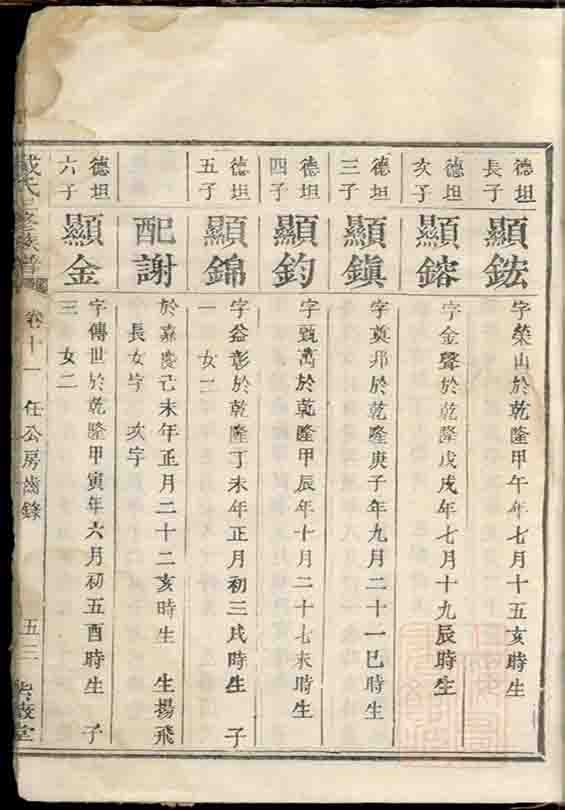 德坦長子
顯鋐
字榮山於乾隆甲午年七月十五亥時生
德坦次子
顯鎔
字金聲於乾隆戊戌年七月十九辰時生
德坦三子
顯鎮
字奠邦於乾隆庚子年九月二十一巳時生
德坦四子
顯鈞
字甄萬於乾隆甲辰年十月二十七未時生
德坦五子
顯錦
字益彰於乾隆丁未年正月初三戌時生 子
一 女二
配謝
於嘉慶己未年正月二十二亥時生 生揚飛
長女字 次字
德坦六子
顯金
字傳世於乾隆甲寅年六月初五酉時生 子
三 女二
氏 修族譜 卷十一 任公房齒錄 五 堂